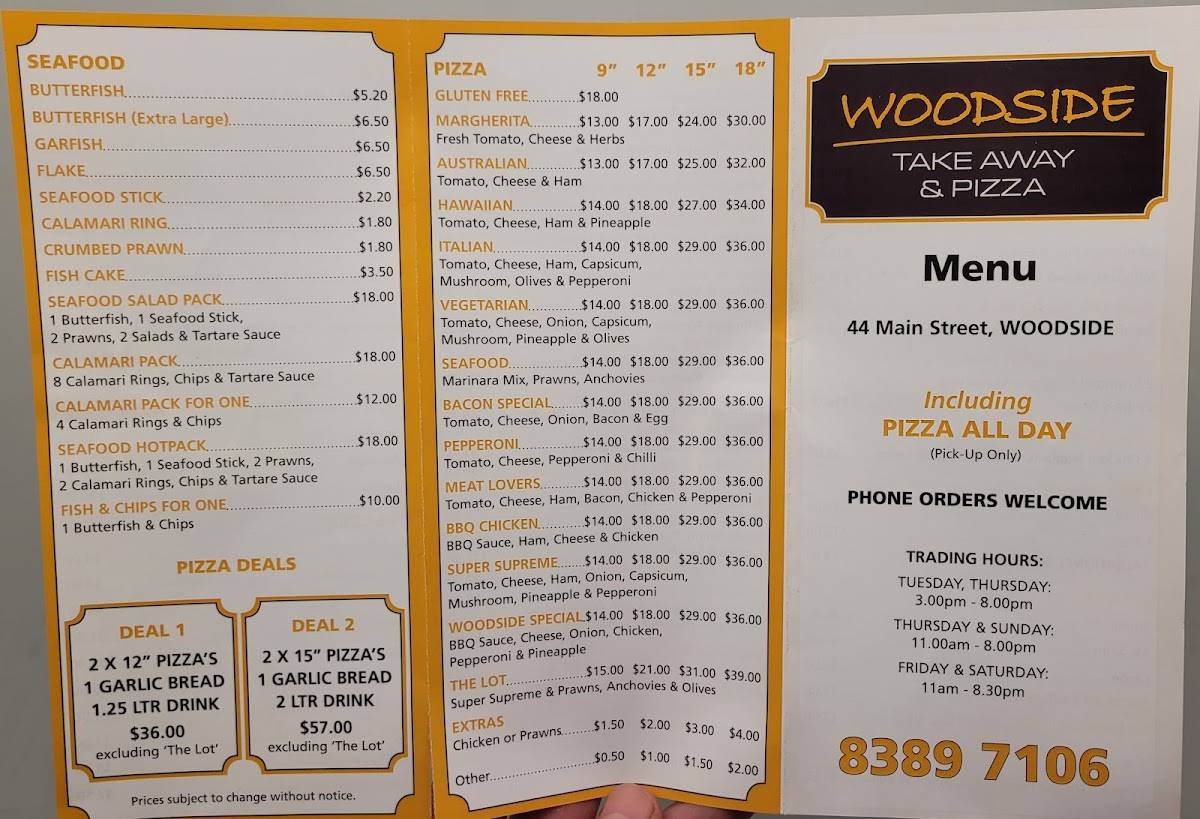 SEAFOOD
BUTTERFISH $5.20
BUTTERFISH (Extra Large) $6.50
GARFISH $6.50
FLAKE $6.50
SEAFOOD STICK $2.20
CALAMARI RING $1.80
CRUMBED PRAWN $1.80
FISH CAKE $3.50
SEAFOOD SALAD PACK $18.00
1 Butterfish, 1 Seafood Stick,
2 Prawns, 2 Salads & Tartare Sauce
CALAMARI PACK $18.00
8 Calamari Rings, Chips & Tartare Sauce
CALAMARI PACK FOR ONE $12.00
4 Calamari Rings & Chips
SEAFOOD HOTPACK $18.00
1 Butterfish, 1 Seafood Stick, 2 Prawns,
2 Calamari Rings, Chips & Tartare Sauce
FISH & CHIPS FOR ONE $10.00
1 Butterfish & Chips
PIZZA DEALS
DEAL 1
2 X 12" PIZZA'S
1 GARLIC BREAD
1.25 LTR DRINK
$36.00
excluding 'The Lot'
DEAL 2
2 X 15" PIZZA'S
1 GARLIC BREAD
2 LTR DRINK
$57.00
excluding 'The Lot'
Prices subject to change without notice.
PIZZA 9" 12" 15" 18"
GLUTEN FREE $18.00
MARGHERITA $13.00 $17.00 $24.00 $30.00
Fresh Tomato, Cheese & Herbs
AUSTRALIAN $13.00 $17.00 $25.00 $32.00
Tomato, Cheese & Ham
HAWAIIAN $14.00 $18.00 $27.00 $34.00
Tomato, Cheese, Ham & Pineapple
ITALIAN $14.00 $18.00 $29.00 $36.00
Tomato, Cheese, Ham, Capsicum,
Mushroom, Olives & Pepperoni
VEGETARIAN $14.00 $18.00 $29.00 $36.00
Tomato, Cheese, Onion, Capsicum,
Mushroom, Pineapple & Olives
SEAFOOD $14.00 $18.00 $29.00 $36.00
Marinara Mix, Prawns, Anchovies
BACON SPECIAL $14.00 $18.00 $29.00 $36.00
Tomato, Cheese, Onion, Bacon & Egg
PEPPERONI $14.00 $18.00 $29.00 $36.00
Tomato, Cheese, Pepperoni & Chilli
MEAT LOVERS $14.00 $18.00 $29.00 $36.00
Tomato, Cheese, Ham, Bacon, Chicken & Pepperoni
BBQ CHICKEN $14.00 $18.00 $29.00 $36.00
BBQ Sauce, Ham, Cheese & Chicken
SUPER SUPREME $14.00 $18.00 $29.00 $36.00
Tomato, Cheese, Ham, Onion, Capsicum,
Mushroom, Pineapple & Pepperoni
WOODSIDE SPECIAL $14.00 $18.00 $29.00 $36.00
BBQ Sauce, Cheese, Onion, Chicken,
Pepperoni & Pineapple
THE LOT $15.00 $21.00 $31.00 $39.00
Super Supreme & Prawns, Anchovies & Olives
EXTRAS
Chicken or Prawns $1.50 $2.00 $3.00 $4.00
Other $0.50 $1.00 $1.50 $2.00
WOODSIDE
TAKE AWAY
& PIZZA
Menu
44 Main Street, WOODSIDE
Including
PIZZA ALL DAY
(Pick-Up Only)
PHONE ORDERS WELCOME
TRADING HOURS:
TUESDAY, THURSDAY:
3.00pm - 8.00pm
THURSDAY & SUNDAY:
11.00am - 8.00pm
FRIDAY & SATURDAY:
11am - 8.30pm
8389 7106